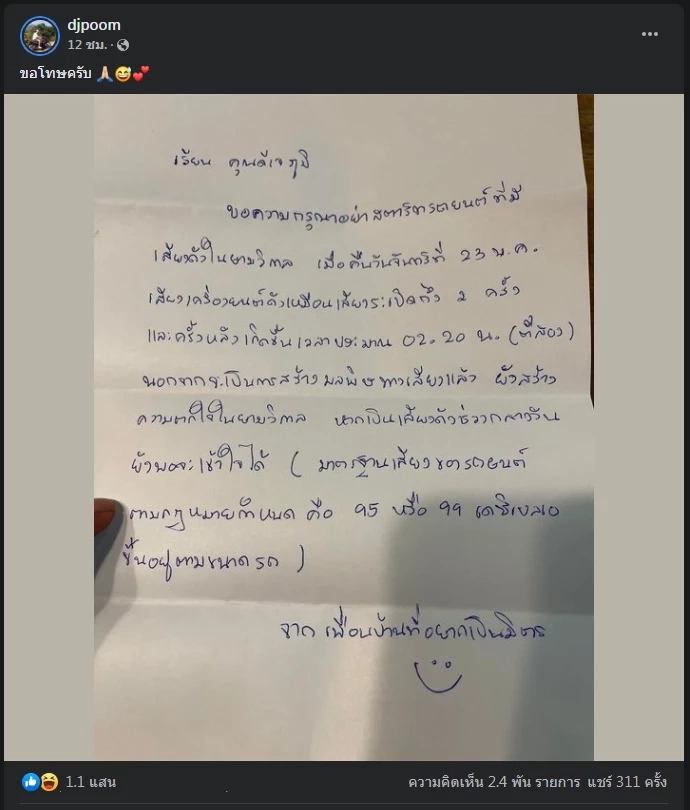 djpoom
12 ชม. ·
ขอโทษครับ 🙏🏻😅💕
เรียน คุณดีเจภูมิ
ขอความกรุณาอย่าสตาร์ทรถยนต์ที่มี
เสียงดังในยามวิกาล เมื่อคืนวันจันทร์ที่ 23 พ.ค.
เสียงเครื่องยนต์ดังเหมือนเสียงระเบิดถึง 2 ครั้ง
และครั้งหลังเกิดขึ้นเวลาประมาณ 02.20 น. (ตีสอง)
นอกจากจะเป็นการสร้างมลพิษทางเสียงแล้ว ยังสร้าง
ความตกใจในยามวิกาล หากเป็นเสียงดังช่วงกลางวัน
ยังพอจะเข้าใจได้ ( มาตรฐานเสียงของรถยนต์
ตามกฎหมายกำหนด คือ 95 หรือ 99 เดซิเบลเอ
ขึ้นอยู่ตามขนาดรถ )
จาก เพื่อนบ้านที่อยากเป็นมิตร
1.1 แสน
ความคิดเห็น 2.4 พัน รายการ แชร์ 311 ครั้ง